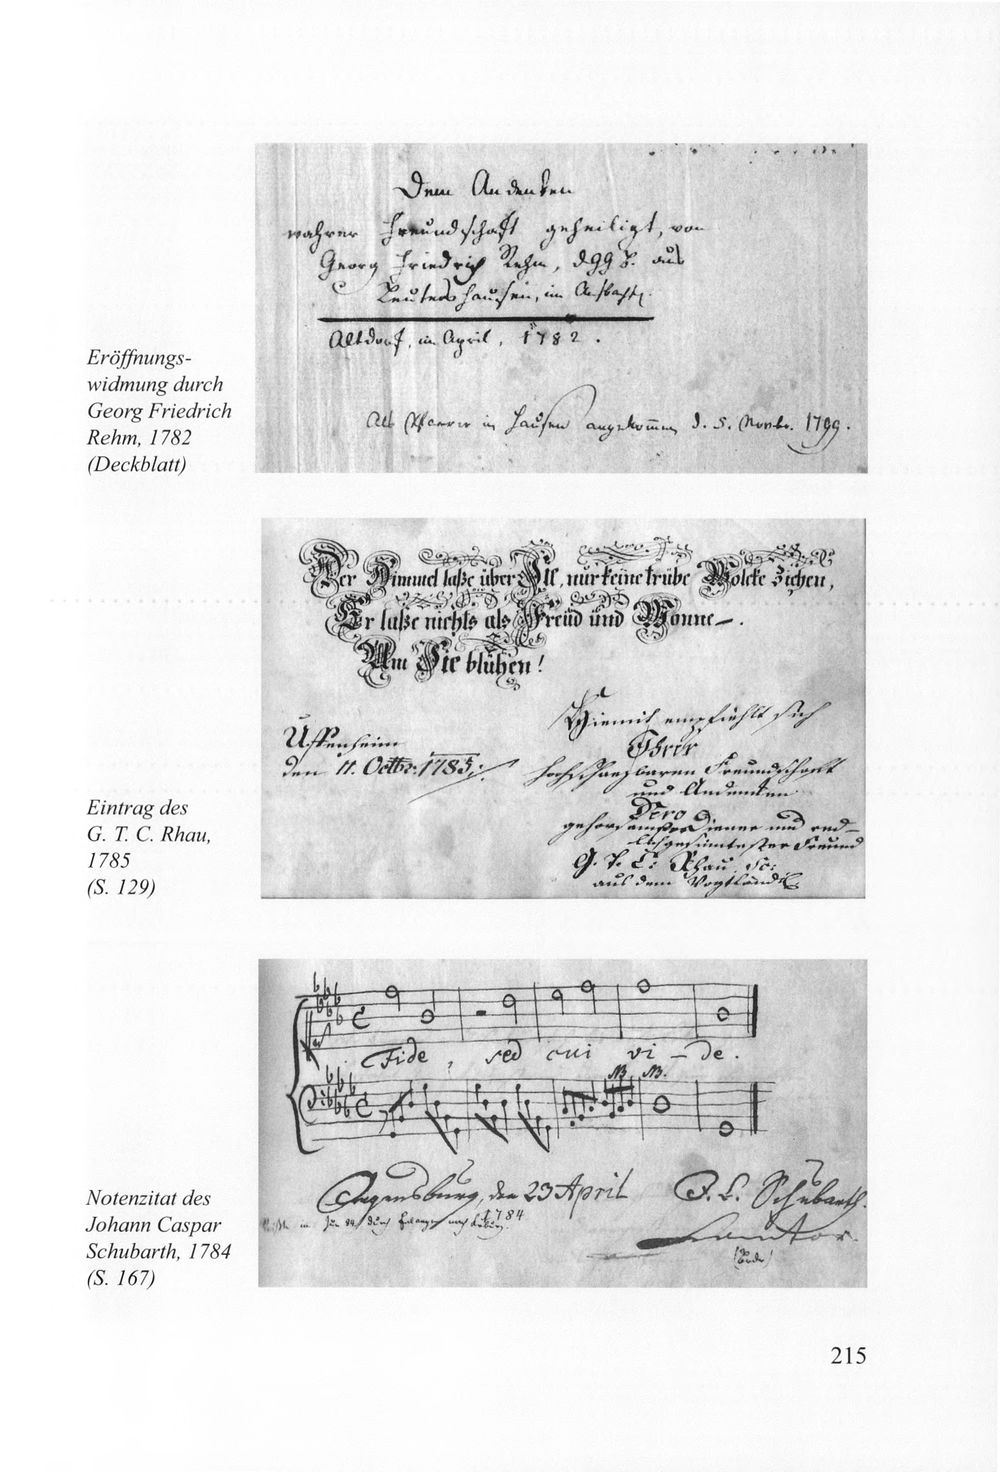 Dem Andenken
wahrer Freundschaft geheiligt, von
Georg Friedrich Rehm, d. G. G. B. aus
Leutershausen, im Ansbach.
Altdorf, im April, 1782.
Als Pfarrer in Hausen angekommen d. 5. Novbr. 1799.
Eröffnungs-
widmung durch
Georg Friedrich
Rehm, 1782
(Deckblatt)
Der Himmel laße über Sie, nur keine trübe Wolcke ziehen,
Er laße nichts als Freüd und Wonne –.
Um Sie blühen!
Uffenheim
den 11. Octbr: 1785;
Hiemit empfiehlt sich
Ihrer
hochschäzbaren Freundschaft
und Andencken
Dero
gehorsamster Diener und red–
lichgesinntester Freund
G. T. C. Rhau,
aus dem Vogtland
Eintrag des
G. T. C. Rhau,
1785
(S. 129)
Fide, sed cui vi – de.
NB. NB.
Regensburg, den 23 April
1784
J. C. Schubarth.
Cantor.
Notenzitat des
Johann Caspar
Schubarth, 1784
(S. 167)
215